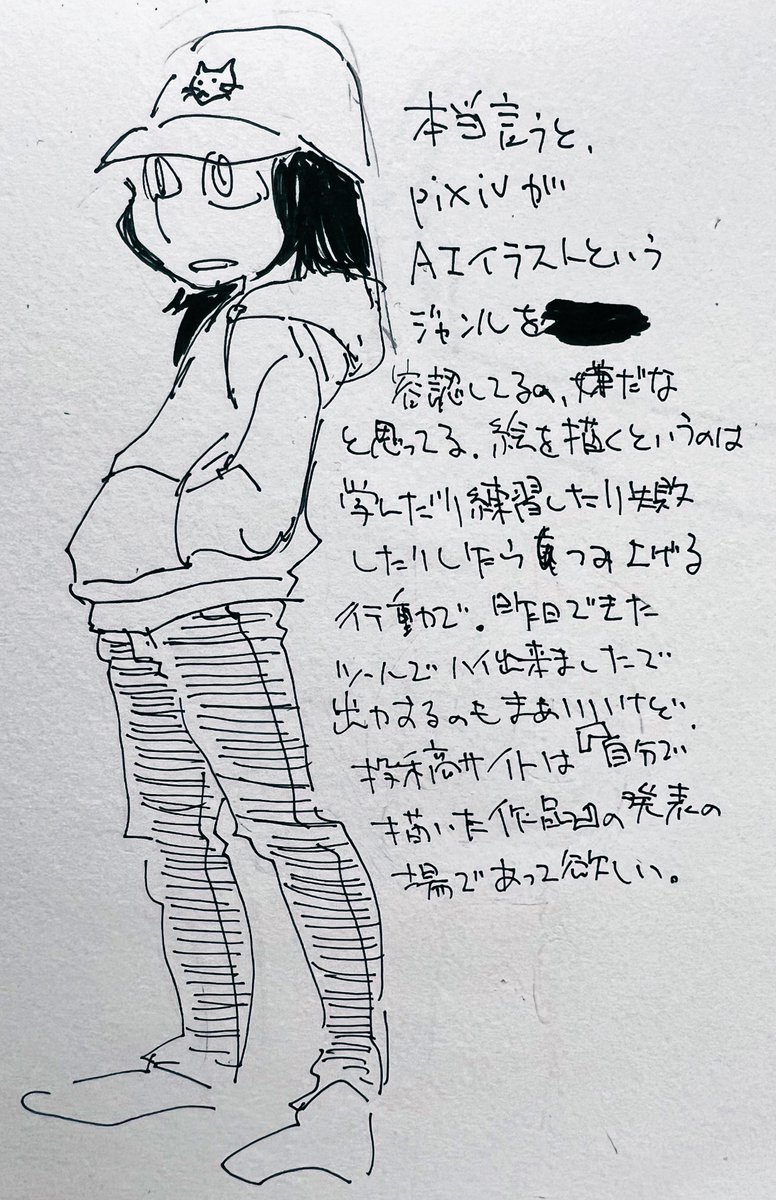 本当言うと、
pixivが
AIイラストという
ジャンルを
容認してるの、嫌だな
と思ってる。絵を描くというのは
学んだり練習したり失敗
したりしたらつみ上げる
行動で。昨日できた
ツールでハイ出来ましたで
出力するのもまあいいけど、
投稿サイトは『自分で
描いた作品』の発表の
場であって欲しい。